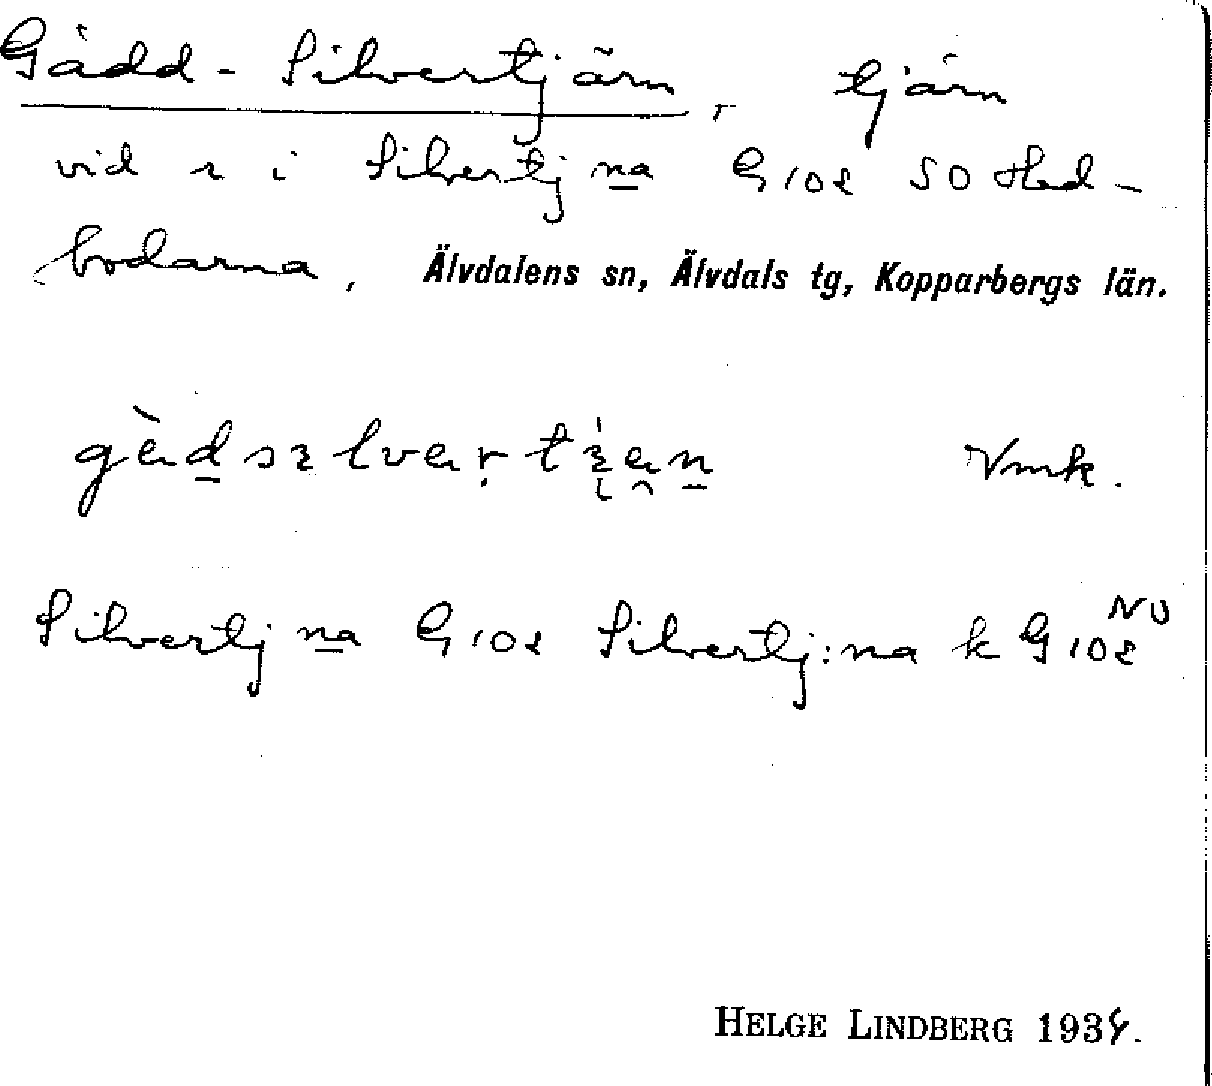 Gädd-Silvertjärn, tjärn
vid r i Silvertj na G 102 SO Hed-
bodarna, Älvdalens sn, Älvdals tg, Kopparbergs län.
Vmk.
Silvertj na G 102 Silvertj:na k G 102 NV
HELGE LINDBERG 1934.